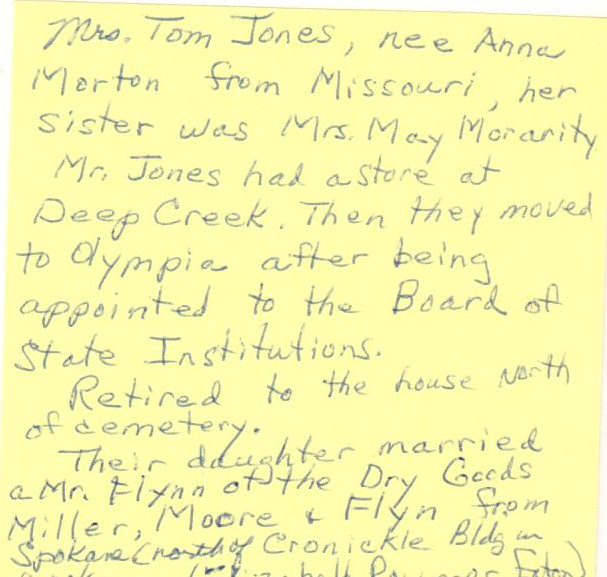 Mrs. Tom Jones, nee Anna
Morton from Missouri, her
sister was Mrs. May Morarity
Mr. Jones had a store at
Deep Creek. Then they moved
to Olympia after being
appointed to the Board of
State Institutions.
Retired to the house North
of cemetery.
Their daughter married
a Mr. Flynn of the Dry Goods
Miller, Moore & Flyn from
Spokane (north of Cronickle Bldg in